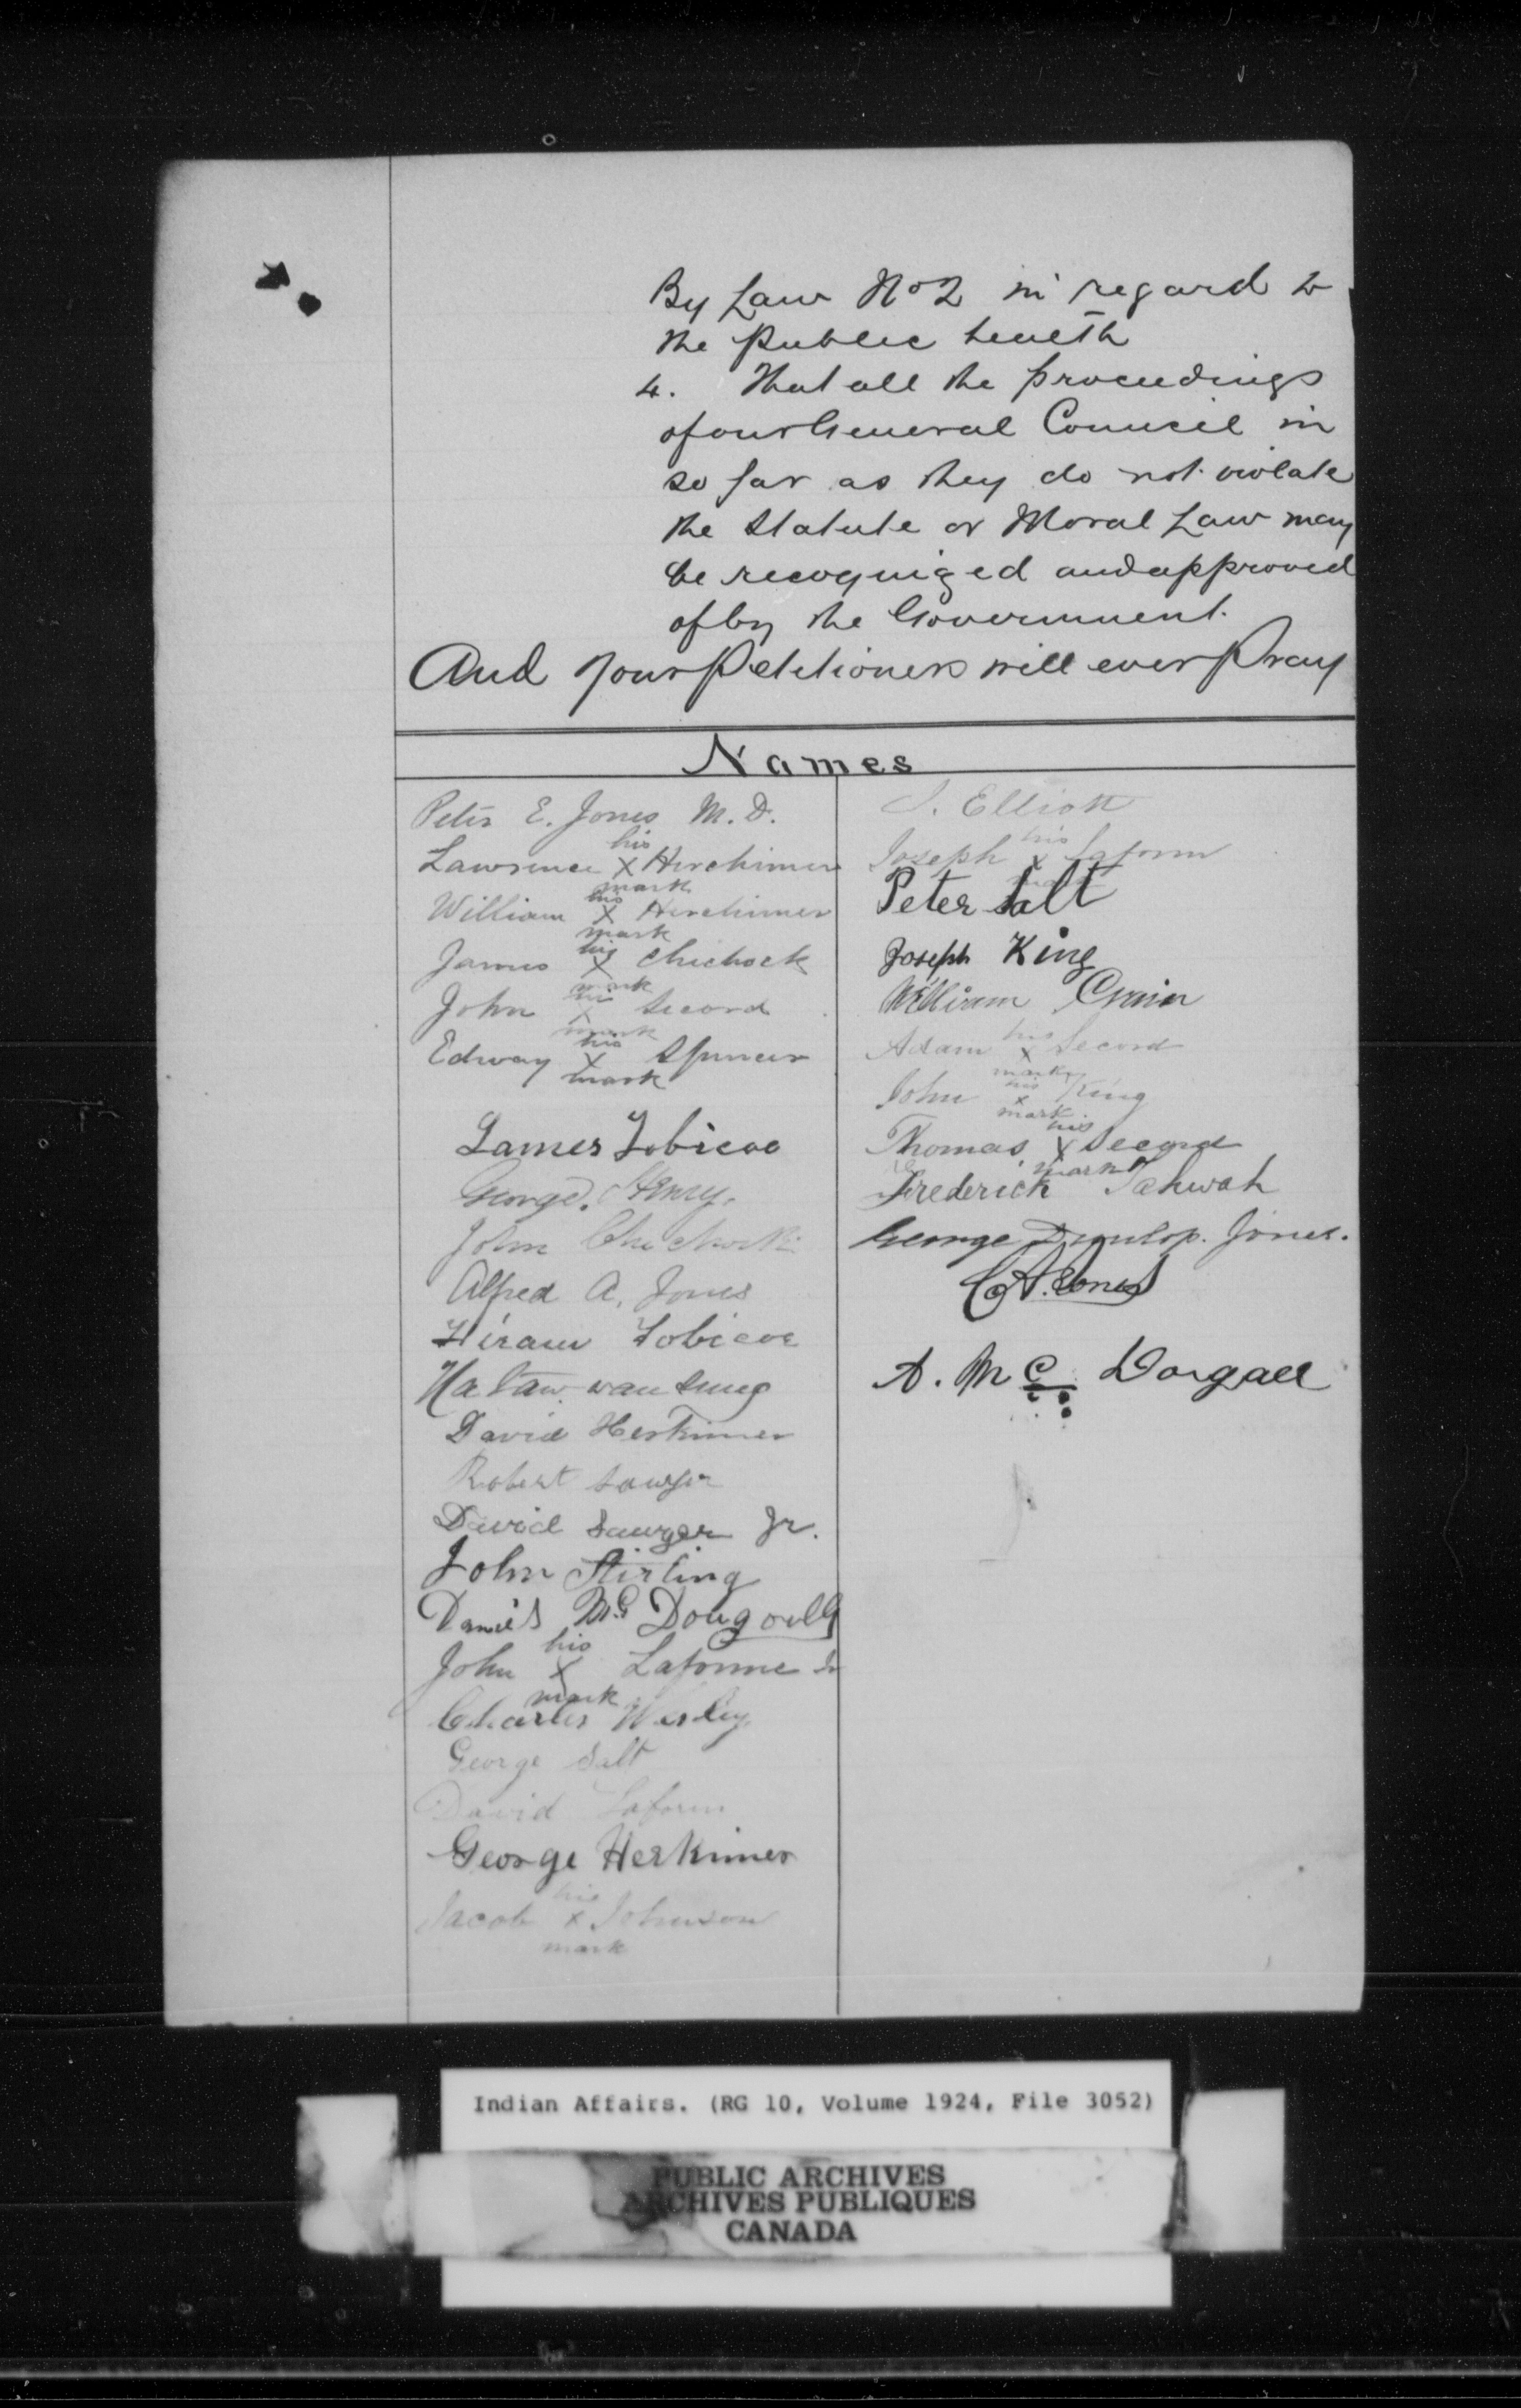 By Law No 2 in regard to
the public health
4. That all the proceedings
of our General Council in
so far as they do not violate
the Statute or Moral Law may
be recognized and approved
of by the Government.
And your Petitioners will ever Pray
Names
Peter E. Jones M. D.
Lawrence his X mark Herchimer
William his X mark Herchimer
James his X mark Chichock
John his X mark Secord
Edway his X mark Spencer
James Tobicoe
George. Henry.
John Chechock
Alfred A. Jones
Hiram Tobicoe
David Herkimer
Robert Sawyer
David Sawyer Jr.
John Stirling
Daniel Mc Dougall
John his X mark Laforme
Charles Wesley
George Salt
David Laform
George Herkimer
Jacob his x mark Johnson
Elliott
Joseph his x Laform
Peter Salt
Joseph King
William Crain
Adam his x mark Secord
John his x mark King
Thomas his X mark Secord
Frederick Tahwah
George Dunlop. Jones.
Jones
A. Mc Dougall
Indian Affairs. (RG 10, Volume 1924, File 3052)
PUBLIC ARCHIVES
ARCHIVES PUBLIQUES
CANADA